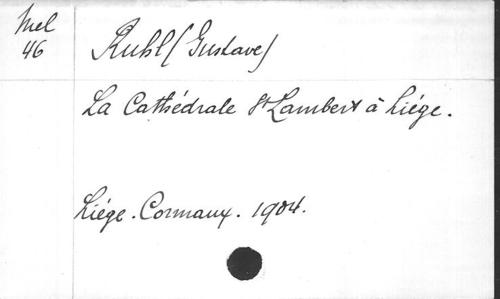 Mel
46
Ruhl (Gustave)
La Cathédrale St Lambert à Liége.
Liége. Cormaux. 1904.